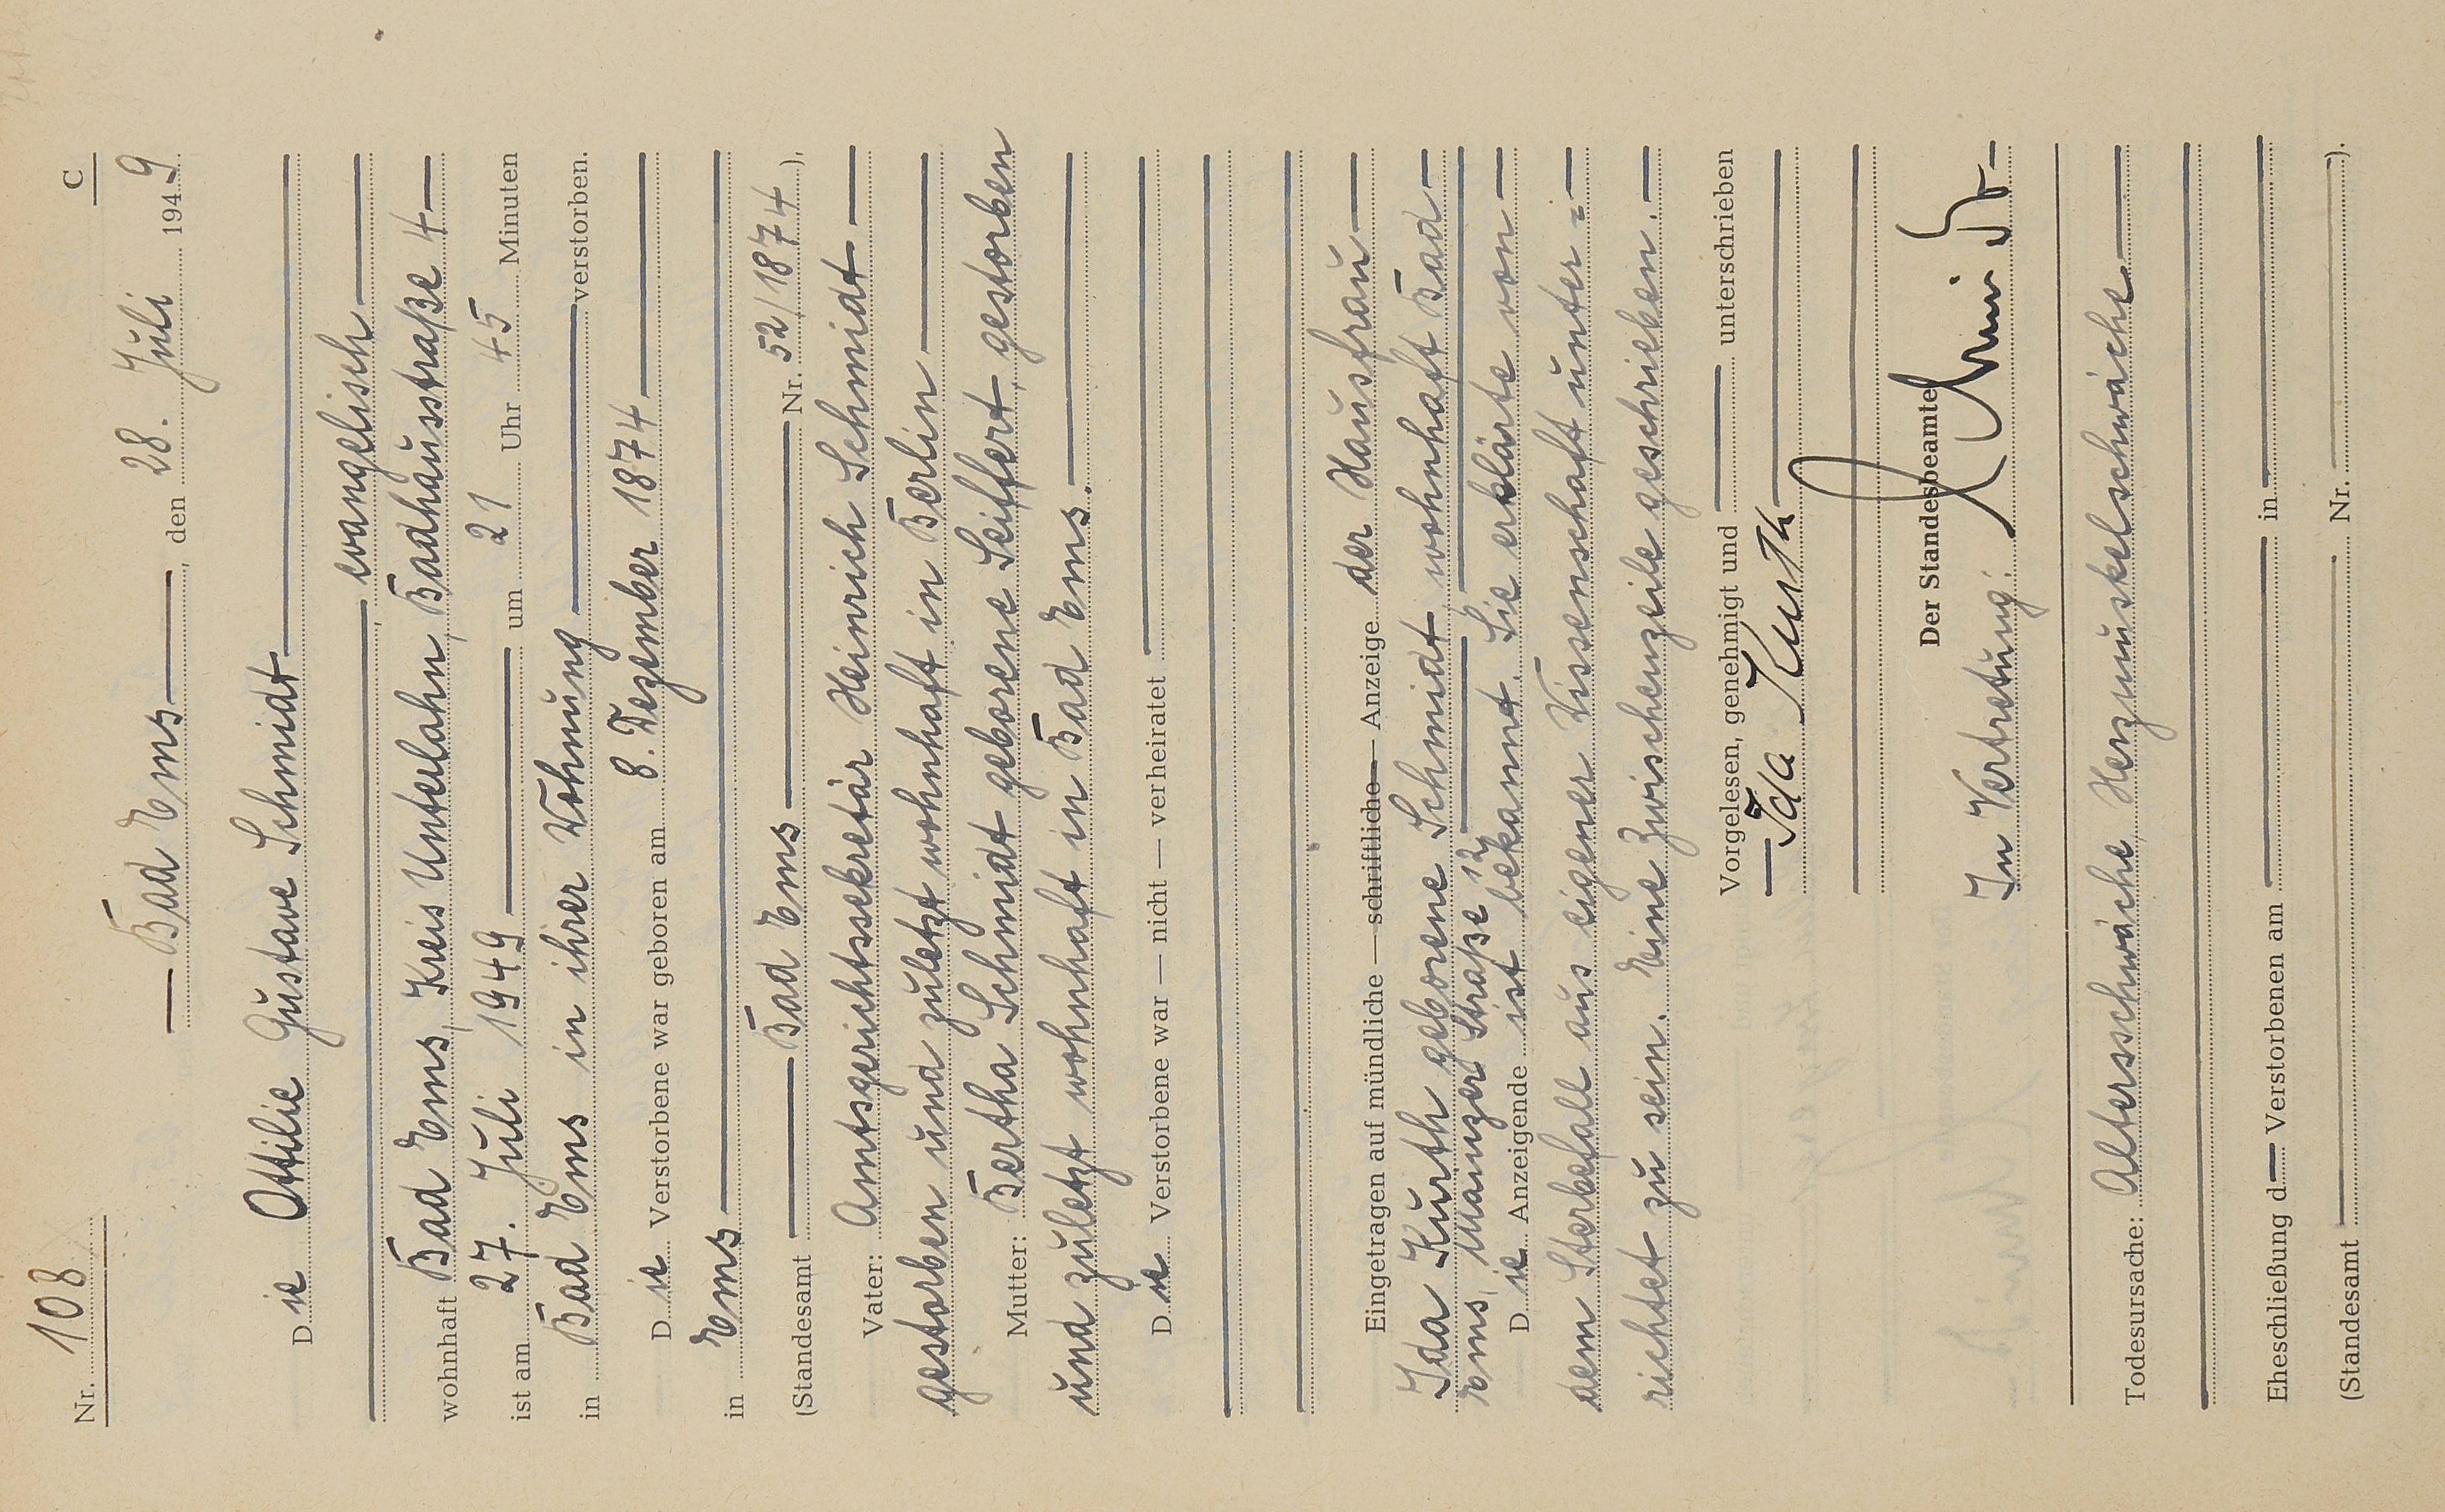 C
Nr. 108
Bad Ems, den 28. Juli 1949
Die Ottilie Gustave Schmidt
, evangelisch
wohnhaft Bad Ems, Kreis Unterlahn, Badhausstraße 4
ist am 27. Juli 1949 um 21 Uhr 45 Minuten
in Bad Ems in ihrer Wohnung verstorben.
Die Verstorbene war geboren am 8. Dezember 1874
in Ems
(Standesamt Bad Ems Nr. 52/1874).
Vater: Amtsgerichtssekretär Heinrich Schmidt
gestorben und zuletzt wohnhaft in Berlin
Mutter: Bertha Schmidt geborene Seiffert, gestorben
und zuletzt wohnhaft in Bad Ems.
Die Verstorbene war — nicht — verheiratet
Eingetragen auf mündliche — schriftliche — Anzeige der Hausfrau
Ida Kurth geborene Schmidt, wohnhaft Bad
Ems, Mainzer Straße 12
Die Anzeigende ist bekannt. Sie erklärte von
dem Sterbefall aus eigener Wissenschaft unter:
richtet zu sein. Eine Zwischenzeile geschrieben.
Vorgelesen, genehmigt und unterschrieben
Ida Kurth
Der Standesbeamte
In Vertretung:
Todesursache: Altersschwäche, Herzmuskelschwäche
Eheschließung d Verstorbenen am in
(Standesamt Nr. ).